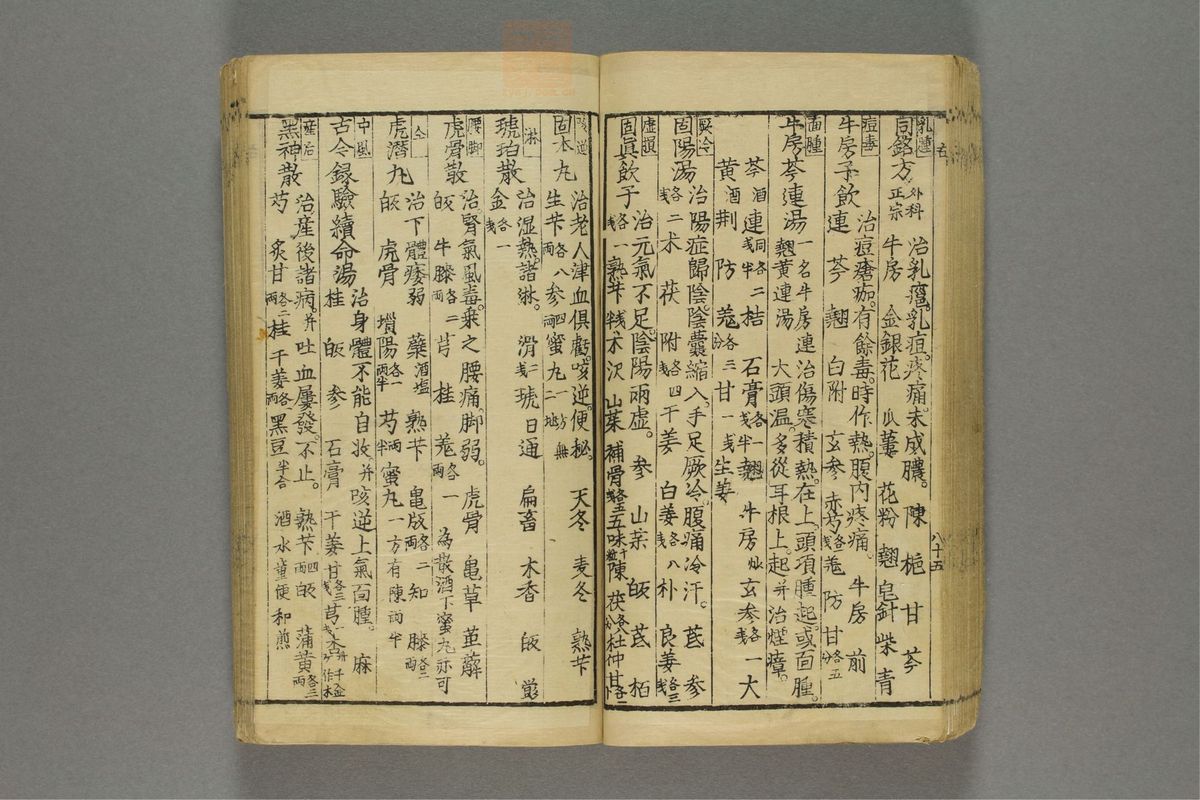 八十五
乳腫
同銘方 外科正宗 治乳癰。乳疽。疼痛。未成膿。 陳 梔 甘 芩
牛房 金銀花 瓜蔞 花粉 翹 皂針 柴 青
痘毒
牛房子飲 治痘瘡痂。有餘毒。時作熱。腹內疼痛。 牛房 前
連 芩 翹 白附 玄參 赤芍各戔 羗 防 甘各五分
面腫
牛房芩連湯 一名牛房連翹黃連湯 治傷寒積熱。在上。頭項腫起。或面腫。
大頭温。多從耳根上起。并治煙瘴。
芩酒 連同各二戔半 桔 石膏各一戔半 翹 牛房炒 玄參各一戔 大
黃酒 荆 防 羗各三分 甘一戔 生姜
厥冷
固陽湯 治陽症歸陰。陰囊縮入。手足厥冷。腹痛冷汗。 芪 參
各二戔 朮 茯 附各四戔 干姜 白姜各八戔 朴 良姜各三戔
虛損
固眞飲子 治元氣不足。陰陽兩虛。 參 山藥 皈 芪 栢
各一戔 熟苄戔半 朮 沢 山茱 補骨 五味十粒 陳 茯各八分 杜仲 甘
咳逆
固本丸 治老人津血俱虧。咳逆。便秘。 天冬 麦冬 熟苄
生苄各八兩 參四兩 蜜丸 一方無地
淋
琥珀散 治湿熱諸淋。 滑二戔 琥 日通 扁畜 木香 皈
金各一戔
腰脚
虎骨散 治腎氣風毒。乗之腰痛。脚弱。 虎骨 亀 草 萆薢
皈 牛膝各二兩 芎 桂 羗各一兩 為散酒下蜜丸亦可
仝
虎潛丸 治下體痿弱 蘗酒塩 熟苄 亀版各二兩 知 膝
皈 虎骨 瑣陽各一兩半 芍兩半 蜜丸 一方有陳兩半
中風
古今録驗續命湯 治身體不能自收。并咳逆上氣面腫。 麻
桂 皈 參 石膏 干姜 甘各三戔 芎戔 杏
産后
黑神散 治産後諸病。并吐血屢發。不止。 熟苄四兩 皈 蒲黄各三兩
芍 炙甘各二兩 桂 干姜各兩 黑豆半合 酒水童便和煎